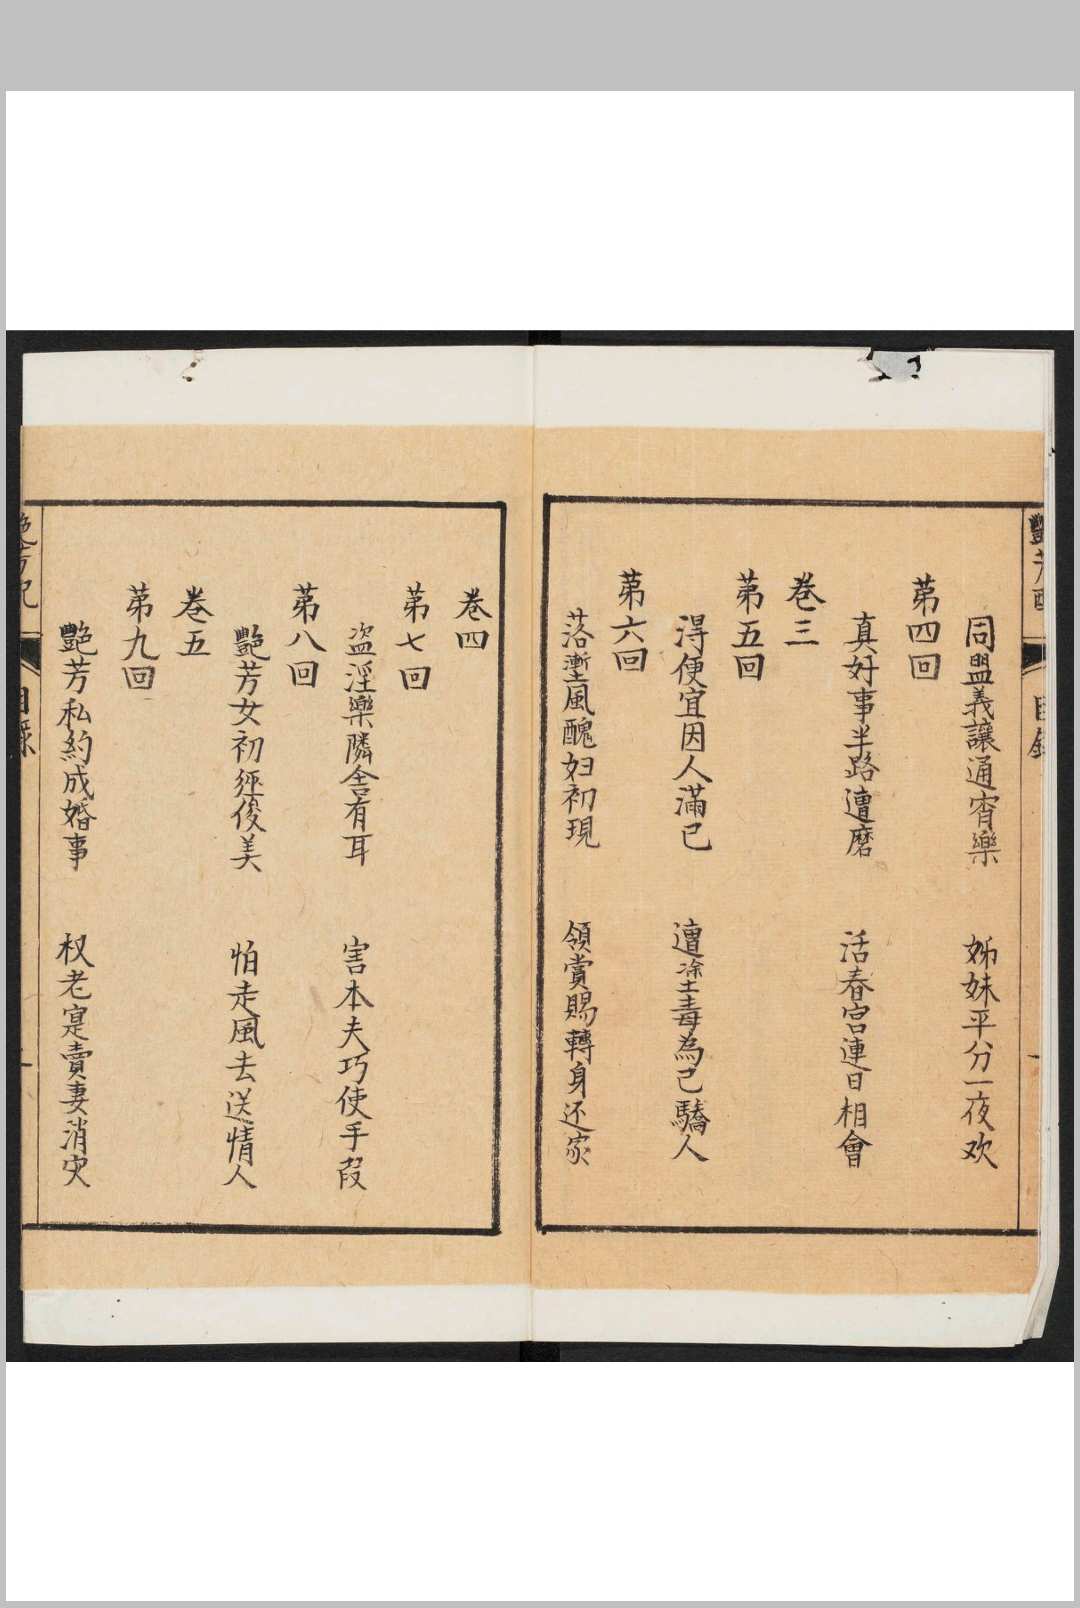 同盟義讓通宵樂　姊妹平分一夜欢
第四回
真好事半路遭磨　活春宮連日相會
卷三
第五回
得便宜因人滿已　遭塗毒為己驕人
第六回
落塹風醜妇初現　領賞賜轉身还家
卷四
第七回
盗淫樂隣舍有耳　害本夫巧使手段
第八回
艷芳女初經俊美　怕走風去送情人
卷五
第九回
艷芳私約成婚事　权老寔賣妻消灾
目錄